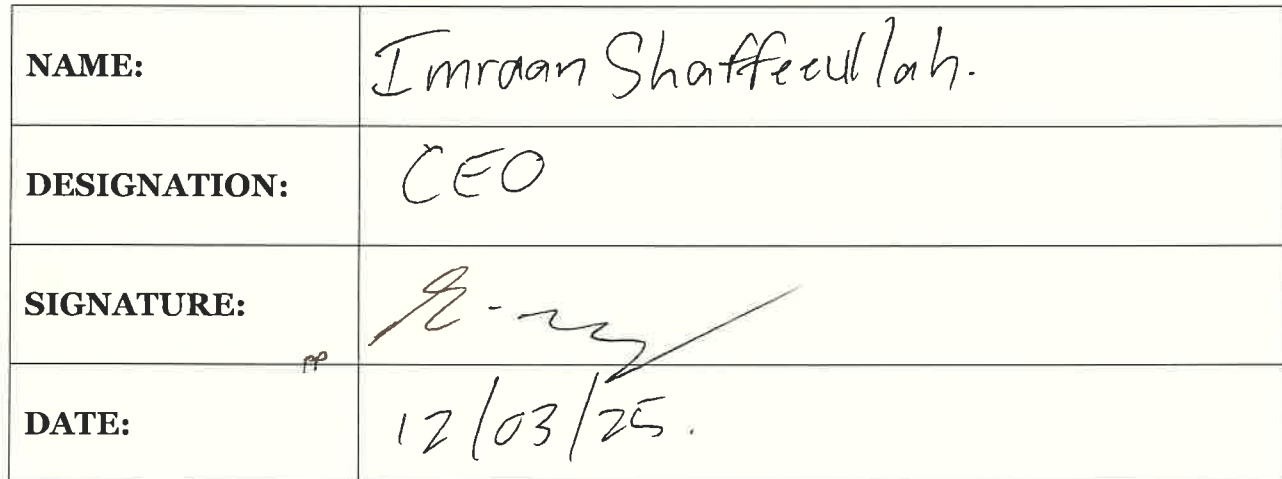 NAME: Imraan Shaffeeullah.
DESIGNATION: CEO
SIGNATURE:
pp
DATE: 12/03/25.